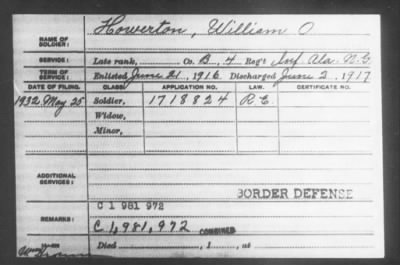 NAME OF SOLDIER: Howerton, William O
SERVICE: Late rank, Co. B, 4 Reg't Inf. Ala. N.G.
TERM OF SERVICE: Enlisted June 21, 1916 Discharged June 2, 1917
DATE OF FILING. CLASS. APPLICATION NO. LAW. CERTIFICATE NO.
1932, May 25 Soldier, 1718824 R.E.
Widow,
Minor,
ADDITIONAL SERVICES:
BORDER DEFENSE
C 1 981 972
REMARKS: C 1,981,972 COMBINED
Died , 1 , at